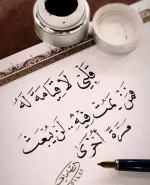 قَلبي لَا قِيَامَةَ لَهُ
فَمَنْ يَمُتْ فِيهِ لَنْ يُبْعَثَ
مَرَّةً أُخْرَى